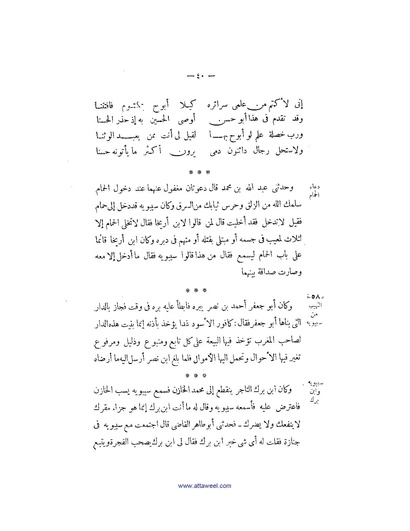 — ٤٠ —
إنى لأكتم من علمى سرائره كيلا أبوح بهم فافتتنا
وقد تقدم فى هذا أبو حسن أوصى الحسين به إذ حذر الحسنا
ورب خصلة علم لو أبوح بها لقيل لى أنت ممن يعبد الوثنا
ولاستحل رجال دائنون دمى يرون أكثر ما يأتونه حسنا
* * *
دعاء الحمام
وحدثنى عبد الله بن محمد قال دعوتان مغفول عنهما عند دخول الحمام
سلمك الله من الزلق وحرس ثيابك من السرق وكان سيبويه قد دخل إلى حمام
فقيل لا تدخل فقد أخليت قال لمن قالوا لابن أريخا فقال لا تخلى الحمام إلا
لثلاث لمعيب فى جسمه أو مبتلى بقتله أو متهم فى دبره وكان ابن أريخا قائما
على باب الحمام ليسمع فقال من هذا قالوا سيبويه فقال ما أدخل إلا معه
وصارت صداقة بينهما
* * *
من سيبويه
وكان أبو جعفر أحمد بن نصر يبره فأبطأ عليه بره فى وقت فجاز بالدار
التى بناها أبو جعفر فقال: كافور الأسود غدا يؤخذ بأذنه إنما بنيت هذه الدار
لصاحب المغرب تؤخذ فيها البيعة على كل تابع ومتبوع وذليل ومرفوع
تغير فيها الأحوال وتحمل إليها الأموال فلما بلغ ابن نصر أرسل اليه ما أرضاه
* * *
سيبويه وابن برك
وكان ابن برك التاجر ينقطع إلى محمد الخازن فسمع سيبويه يسب الخازن
فاعترض عليه فأسمعه سيبويه وقال له ما أنت ابن برك إنما هو جزاء مقرك
لا ينفعك ولا يضرك – فحدثنى أبو طاهر القاضى قال اجتمعت مع سيبويه فى
جنازة فقلت له أى شىء خبر ابن برك فقال لى ابن برك يصحب الفجرة ويتبع
www.attaweel.com